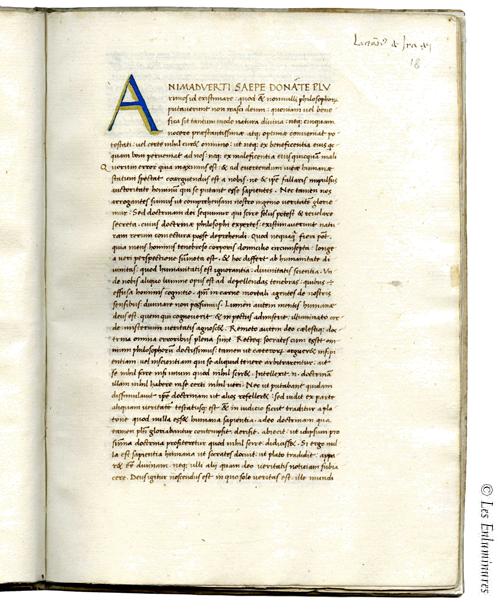 Lactāc̄ de Ira dei
18
ANIMADVERTI SAEPE DONATE PLV
rimos id existimare: quod & nonnulli philosophorum
putauerunt non irasci deum: quoniam uel bene
fica sit tantum modo natura diuina: neq; cuiquam
nocere praestantissimae atq; optimae conueniat po
testati: uel certe nihil curet omnino: ut neq; ex beneficentia eius q
quam boni perueniat ad nos: neq; ex maleficentia eius quicq̄ mali
uorum error quia maximus est: & ad euertendum uitae humanae
statum spectat coarguendus est a nobis: ne & ip̄e fallaris impulsus
auctoritate hominū qui se putant esse sapientes. Nec tamen nos
arrogantes sumus ut comprehensam nostro ingenio ueritatē glorie
mur. Sed doctrinam dei sequimur qui scire solus potest & reuelare
secreta. cuius doctrinae philosophi expertes: existimauerunt natu
ram rerum coniectura posse deprehendi. Quod nequaq̄ fieri pōt.
quia mens hominis tenebroso corporis domicilio circumsepta: longe
a ueri perspectione sūmota est. & hoc differt ab humanitate di
uinitas: quod humanitatis est ignorantia: diuinitatis scientia. Vn
de nobis aliquo lumine opus est ad depellendas tenebras: quibus
effusa hominis cogitatio. qm̄ in carne mortali agentes de nostris
sensibus: diuinare non possumus. Lumen autem mentis humanae
deus est. quem qui cognouerit & in pectus admiserit: illuminato cor
de misterium ueritatis agnoscet. Remoto autem deo caelestiq; doc
trina omnia erroribus plena sunt. Recteq; Socrates cum esset om
nium philosophorū doctissimus: tamen ut ceterorū argueret insipi
entiam. uel inscientiam qui se aliquid tenere arbitrarentur. ait
se nihil scire nisi unum quod nihil sciret. Intellexit .n. doctrinam
illam nihil habere in se certi nihil ueri. Nec ut putabant quidam
dissimulauit ip̄e doctrinam ut alios refelleret: sed uidit ex parte
aliquam ueritatē testatusq; est & in iudicio sicut traditur a pla
tone quod nulla esset humana sapientia. adeo doctrinam qua
tamen phī gloriabantur contempsit. derisit. abiecit. ut id ipsum pro
sūma doctrina profiteretur quod nihil scire didicisset. Si ergo nul
la est sapientia humana ut socrates docuit. ut plato tradidit. appa
ret & eē diuinam. neq; ulli alij quam deo ueritatis notitiam subia
cere. Deus igitur noscendus est in quo solo ueritas est. ille mundi
© Les Enluminures